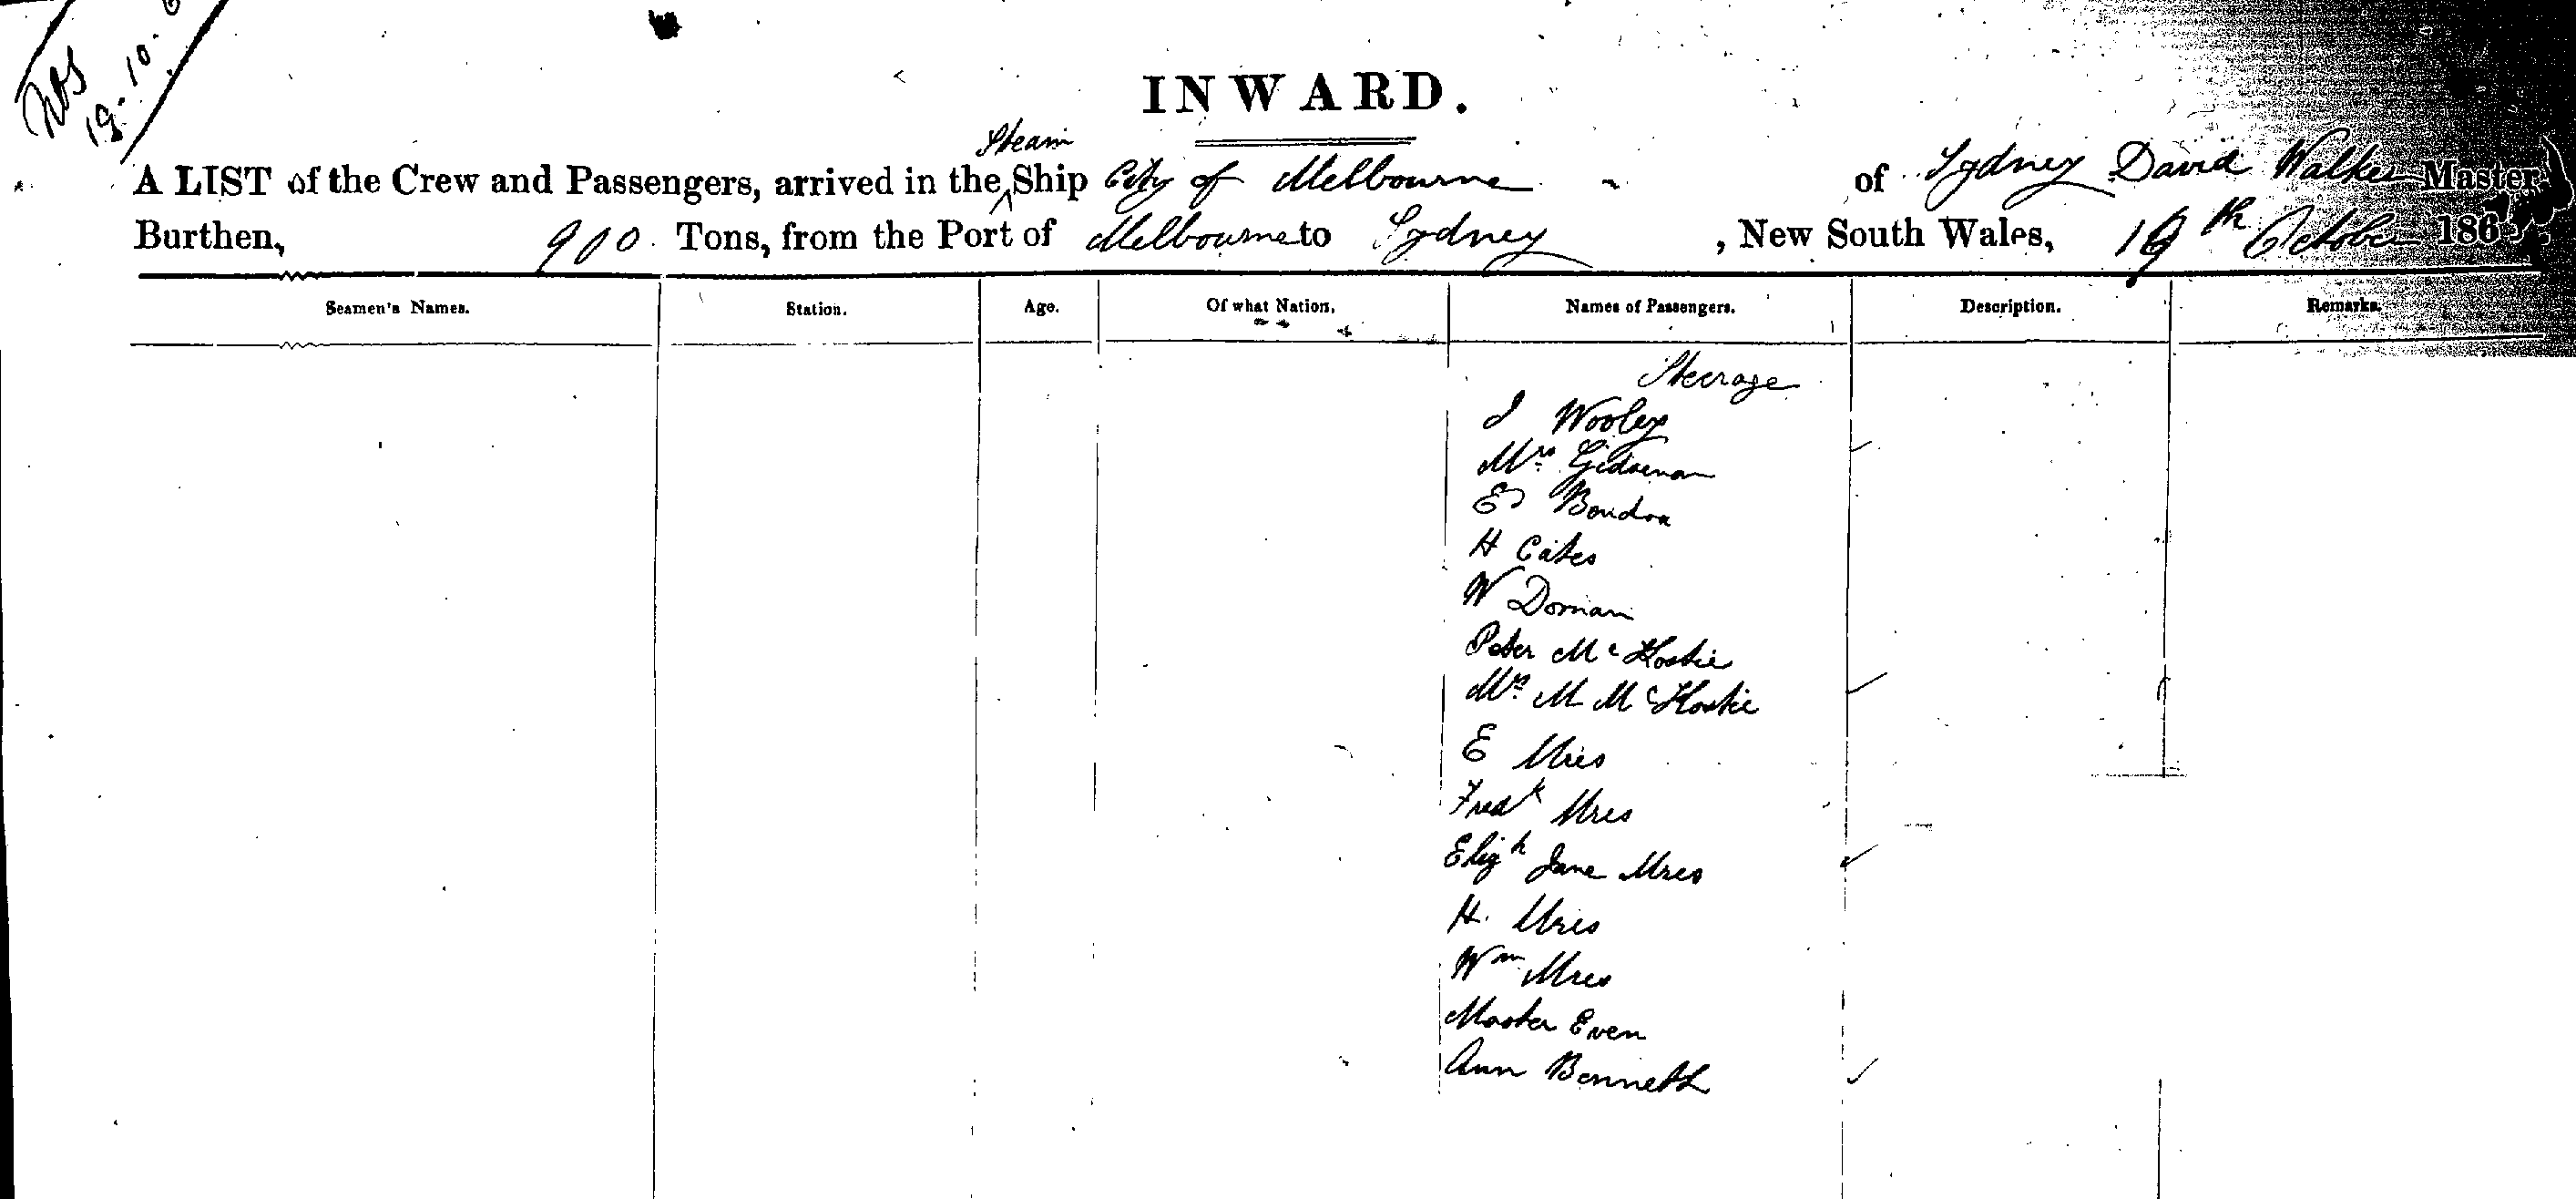 19-10-6
INWARD.
A LIST of the Crew and Passengers, arrived in the Steam Ship City of Melbourne of Sydney David Walker Master,
Burthen, 900 Tons, from the Port of Melbourne to Sydney, New South Wales, 19th October 186
Seamen's Names. Station. Age. Of what Nation. Names of Passengers. Description. Remarks.
Steerage
J Wooley
Mrs
Ed
H Cates
W Dornan
Peter Mc Hostie
Mrs M McHostie
E Ures
Fredk Ures
Elizh Jane Ures
H. Ures
Wm Ures
Master Even
Ann Bennett